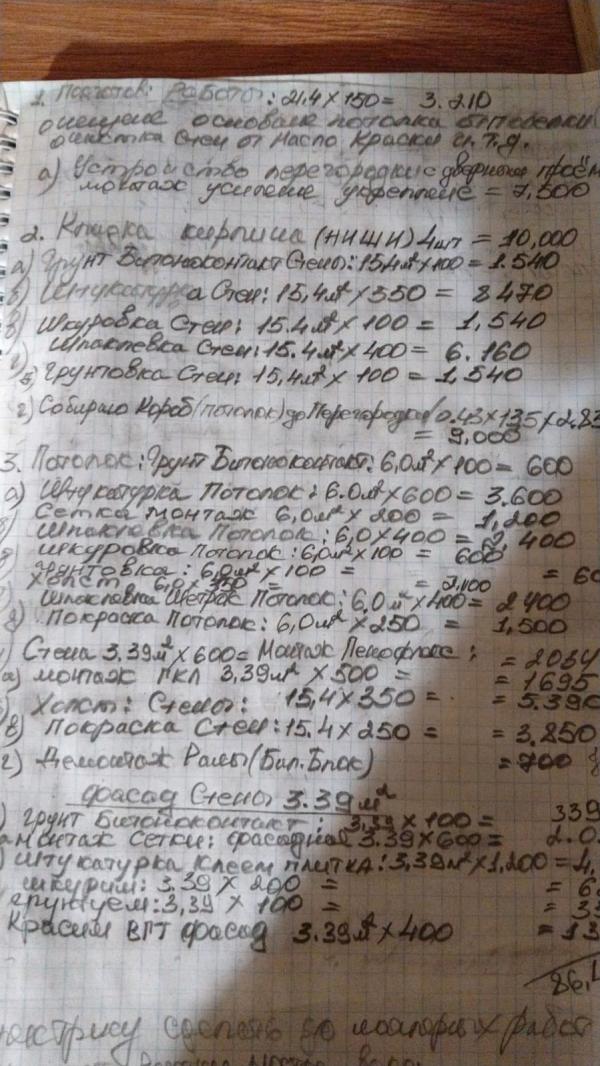 1. Подготов: Работы: 21.4 x 150 = 3.210
очищение основание потолка от побелки
очистка Стен от Насло Краски и.т.д.
а) Устройство перегородки с дверным проём
монтаж усиление укрепление = 7,500
2. Кладка кирпича (НИШИ) 4шт = 10,000
а) Грунт Битоноконтакт Стены: 15,4м² x 100 = 1.540
б) Штукатурка Стен: 15,4м² x 350 = 8470
в) Шкуровка Стен: 15.4м² x 100 = 1,540
Шпаклевка Стен: 15.4м² x 400 = 6.160
Грунтовка Стен: 15,4м² x 100 = 1,540
г) Собираю Короб (потолок) до Перегородки 0.43 x 1.35 x 2.83
= 9,000
3. Потолок: Грунт Битоноконтакт: 6,0м² x 100 = 600
а) Штукатурка Потолок: 6.0м² x 600 = 3,600
Сетка монтаж 6,0м² x 200 = 1,200
Шпаклевка Потолок: 6,0 x 400 = 2,400
Шкуровка Потолок: 6,0м² x 100 = 600
Грунтовка: 6,0м² x 100 = = 60
Холст 6,0 x 350 = = 2,100
Шпаклевка Потолок: 6,0м² x 400 = 2400
Покраска Потолок: 6,0м² x 250 = 1,500
Стена 3.39м² x 600 = Монтаж Пенофлекс: = 2034
а) монтаж ГКЛ 3,39м² x 500 = = 1695
Холст: Стены: 15,4 x 350 = = 5.390
в) Покраска Стен: 15.4 x 250 = = 3.850
г) Демонтаж Рамы (Бал. Блок) = 700
фасад Стены 3.39м²
грунт Битоноконтакт: 3,39 x 100 = 339
монтаж Сетки: фасадная 3.39 x 600 = 2.0
штукатурка клеем плитка: 3,39м² x 1,200 = 4.
шкурим: 3.39 x 200 = = 6
грунтуем: 3,39 x 100 = = 33
Красим ВПТ фасад 3.39м² x 400 = 13
86,1
сделать до малярных работ